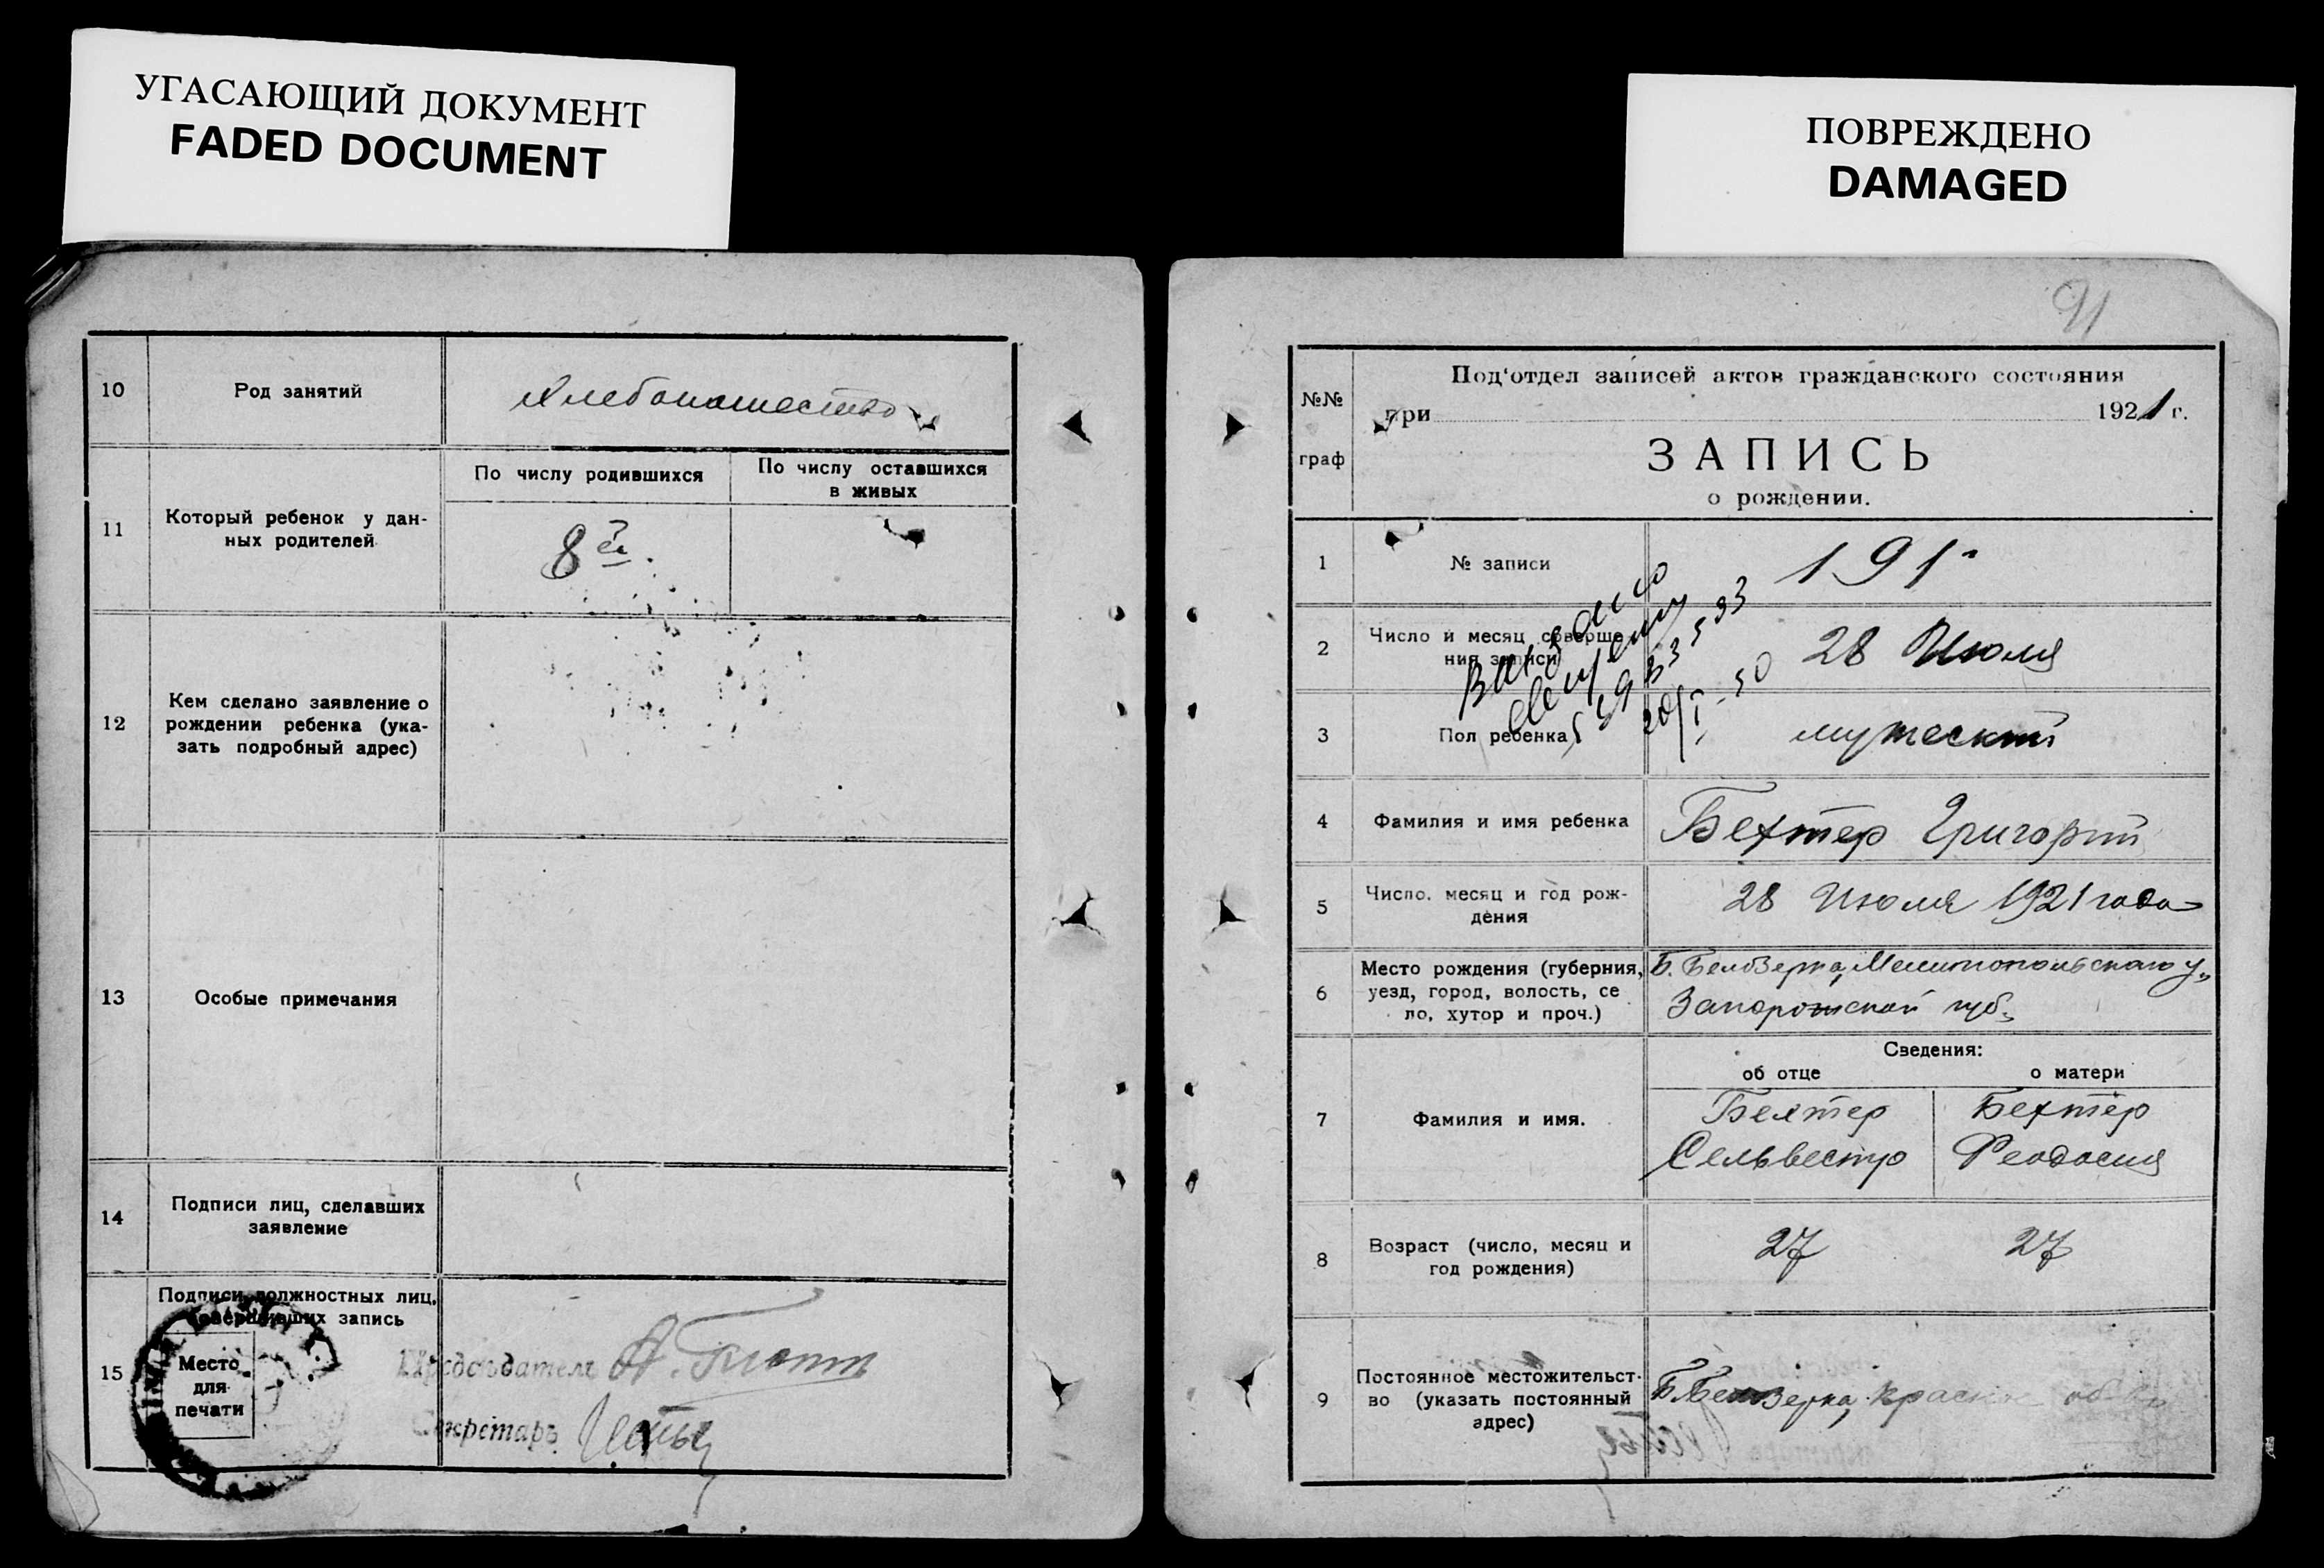 УГАСАЮЩИЙ ДОКУМЕНТ
FADED DOCUMENT
10
Род занятий
Хлебопашество
11
Который ребенок у дан-
ных родителей
По числу родившихся
По числу оставшихся
в живых
8й.
12
Кем сделано заявление о
рождении ребенка (ука-
зать подробный адрес)
13
Особые примечания
14
Подписи лиц, сделавших
заявление
15
Подписи должностных лиц,
совершивших запись
Место
для
печати
Председатель А.
Секретарь
ПОВРЕЖДЕНО
DAMAGED
91
№№
граф
Под'отдел записей актов гражданского состояния
при 1921 г.
ЗАПИСЬ
о рождении.
1
№ записи
191
2
Число и месяц соверше
ния записи
28 Июля
3
Пол ребенка
мужеский
4
Фамилия и имя ребенка
Бехтер Григорий
5
Число, месяц и год рож-
дения
28 Июля 1921 года
6
Место рождения (губерния,
уезд, город, волость, се
ло, хутор и проч.)
Б. Белозерка, Мелитопольскаго у.,
Запорожской губ.
Сведения:
об отце
о матери
7
Фамилия и имя.
Бехтер
Сельвестр
Бехтер
Феодосия
8
Возраст (число, месяц и
год рождения)
27
27
9
Постоянное местожительст-
во (указать постоянный
адрес)
Б Белозерка,